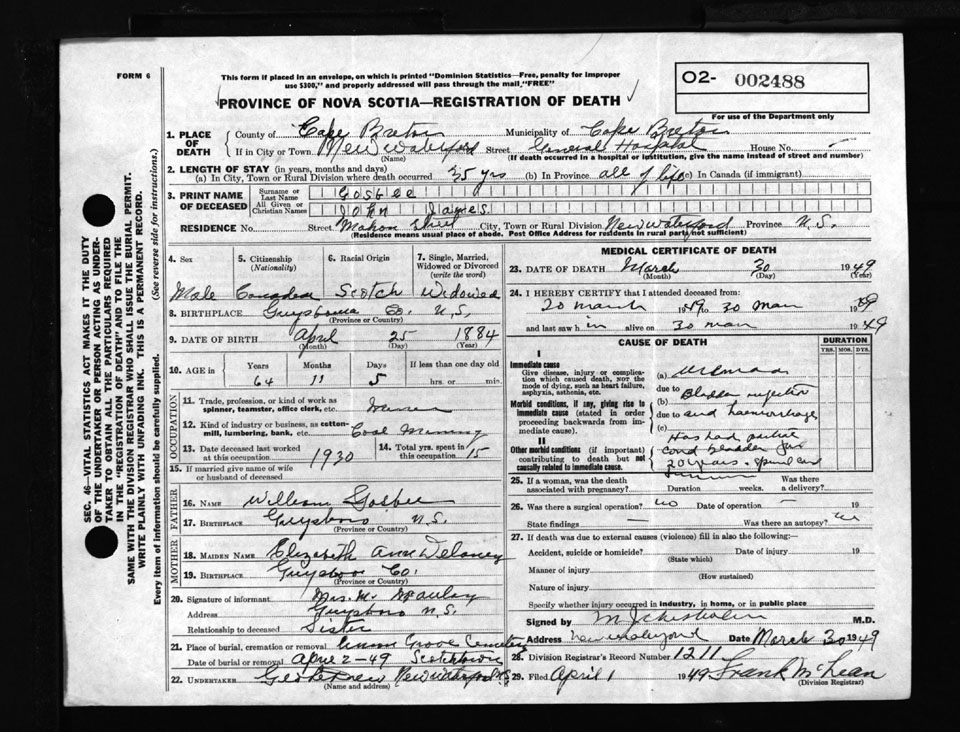 FORM 6
This form if placed in an envelope, on which is printed "Dominion Statistics—Free, penalty for improper
use $300," and properly addressed will pass through the mail "FREE"
PROVINCE OF NOVA SCOTIA—REGISTRATION OF DEATH
O2- 002488
For use of the Department only
1. PLACE OF DEATH
County of Cape Breton Municipality of Cape Breton
If in City or Town New Waterford Street General Hospital House No. —
(Name) (If death occurred in a hospital or institution, give the name instead of street and number)
2. LENGTH OF STAY (in years, months and days)
(a) In City, Town or Rural Division where death occurred 35 yrs (b) In Province all of life (c) In Canada (if immigrant)
3. PRINT NAME OF DECEASED
Surname or Last Name Gosbee
All Given or Christian Names John James
RESIDENCE No. Street Mahon Street City, Town or Rural Division New Waterford Province N.S.
(Residence means usual place of abode. Post Office Address for residents in rural parts not sufficient)
4. Sex Male
5. Citizenship (Nationality) Canadian
6. Racial Origin Scotch
7. Single, Married, Widowed or Divorced (write the word) Widowed
8. BIRTHPLACE Co. N.S.
(Province or Country)
9. DATE OF BIRTH April 25 1884
(Month) (Day) (Year)
10. AGE in Years Months Days If less than one day old
64 11 5 hrs. or min.
OCCUPATION
11. Trade, profession, or kind of work as spinner, teamster, office clerk, etc. Miner
12. Kind of industry or business, as cotton-mill, lumbering, bank, etc. Coal Mining
13. Date deceased last worked at this occupation 1930
14. Total yrs. spent in this occupation 15
15. If married give name of wife or husband of deceased
FATHER
16. NAME William Gosbee
17. BIRTHPLACE Guysboro N.S.
(Province or Country)
MOTHER
18. MAIDEN NAME Elizabeth Ann Delaney
19. BIRTHPLACE Co.
(Province or Country)
20. Signature of informant Mrs. M. McAulay
Address Guysboro N.S.
Relationship to deceased Sister
21. Place of burial, cremation or removal Grove Cemetery
Date of burial or removal April 2-49 Scotchtown
22. UNDERTAKER New Waterford NS
(Name and address)
MEDICAL CERTIFICATE OF DEATH
23. DATE OF DEATH March 30 1949
(Month) (Day) (Year)
24. I HEREBY CERTIFY that I attended deceased from:
20 March 1949 to 30 Mar 1949
and last saw him alive on 30 Mar 1949
CAUSE OF DEATH
DURATION
YRS. MOS. DYS.
I
Immediate cause
Give disease, injury or complication which caused death, not the mode of dying, such as heart failure, asphyxia, asthenia, etc.
(a)
due to
Morbid conditions, if any, giving rise to immediate cause (stated in order proceeding backwards from immediate cause).
(b) Bladder infection
due to and haemorrhage
(c)
II
Other morbid conditions (if important) contributing to death but not causally related to immediate cause.
Has had
cord bladder for
20 years. Spinal cord
25. If a woman, was the death associated with pregnancy? Duration weeks. Was there a delivery?
26. Was there a surgical operation? no Date of operation — 19
State findings — Was there an autopsy? no
27. If death was due to external causes (violence) fill in also the following:
Accident, suicide or homicide? Date of injury 19
(State which)
Manner of injury
(How sustained)
Nature of injury
Specify whether injury occurred in industry, in home, or in public place
Signed by M J Chisholm M.D.
Address New Waterford Date March 30 1949
28. Division Registrar's Record Number 1211
29. Filed April 1 1949 Frank McLean
(Division Registrar)
SEC. 46—VITAL STATISTICS ACT MAKES IT THE DUTY
OF THE UNDERTAKER OR PERSON ACTING AS UNDER-
TAKER TO OBTAIN ALL THE PARTICULARS REQUIRED
IN THE "REGISTRATION OF DEATH" AND TO FILE THE
SAME WITH THE DIVISION REGISTRAR WHO SHALL ISSUE THE BURIAL PERMIT.
WRITE PLAINLY WITH UNFADING INK. THIS IS A PERMANENT RECORD.
Every item of information should be carefully supplied. (See reverse side for instructions.)